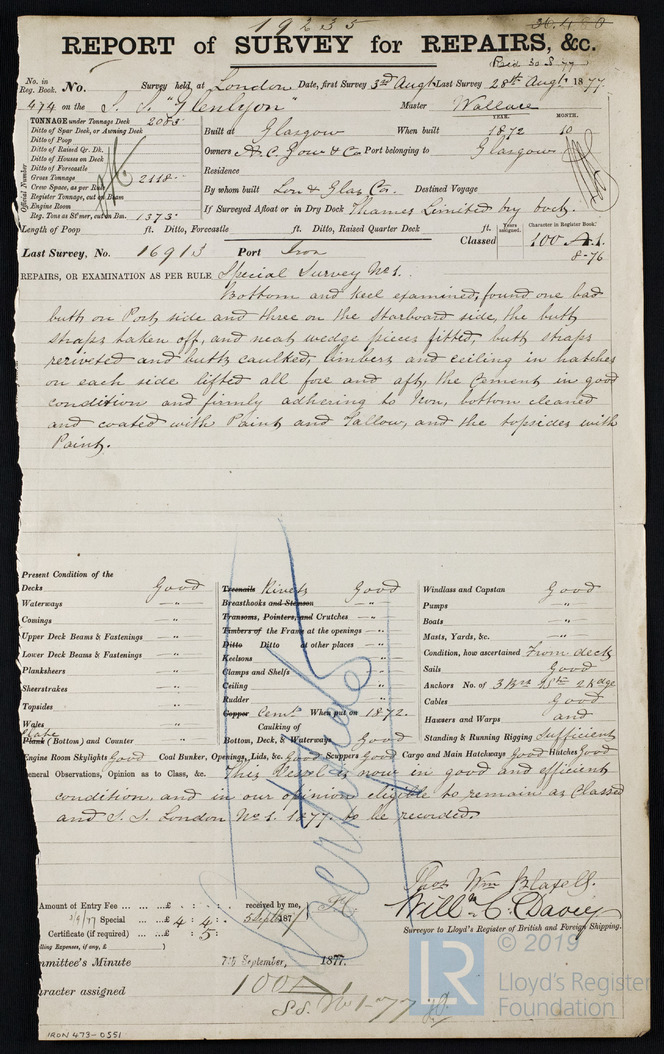 19235
REPORT of SURVEY for REPAIRS, &c.
Paid 30.8.77
No. in Reg. Book. No. Survey held at London Date, first Survey 3rd Augt Last Survey 28th Augt 1877
474 on the S. S. "Glenlyon" Master Wallace
TONNAGE under Tonnage Deck 2083
Ditto of Spar Deck, or Awning Deck
Ditto of Poop
Ditto of Raised Qr. Dk.
Ditto of Houses on Deck
Ditto of Forecastle
Gross Tonnage 2118
Crew Space, as per Rule
Register Tonnage, cut on Beam
Engine Room
Reg. Tons as St'mer, cut on Bm. 1373
Official Number
YEAR. MONTH.
Built at Glasgow When built 1872 10
Owners A. C. Gow & Co Port belonging to Glasgow
Residence
By whom built Lon & Glas Co. Destined Voyage
If Surveyed Afloat or in Dry Dock Thames Limited dry dock.
Length of Poop ft. Ditto, Forecastle ft. Ditto, Raised Quarter Deck ft.
Classed Years assigned. Character in Register Book: 100 A.1.
8-76
Last Survey, No. 16913 Port Iron
REPAIRS, OR EXAMINATION AS PER RULE, Special Survey No 1.
Bottom and keel examined, found one bad
butt on Port side and three on the starboard side, the butt
straps taken off, and neat wedge pieces fitted, butt straps
reriveted and butts caulked, limbers and ceiling in hatches
on each side lifted all fore and aft, the cement in good
condition and firmly adhering to Iron, bottom cleaned
and coated with Paint and Tallow, and the topsides with
Paint.
Present Condition of the
Decks Good
Waterways -"-
Comings -"-
Upper Deck Beams & Fastenings -"-
Lower Deck Beams & Fastenings -"-
Planksheers -"-
Sheerstrakes -"-
Topsides -"-
Wales -"-
Plate
Plank (Bottom) and Counter -"-
Treenails Rivets Good
Breasthooks and Stemson -"-
Transoms, Pointers, and Crutches -"-
Timbers of the Frame at the openings -"-
Ditto Ditto at other places -"-
Keelsons -"-
Clamps and Shelfs -"-
Ceiling -"-
Rudder -"-
Copper Cemt When put on 1872.
Caulking of
Bottom, Deck, & Waterways Good
Windlass and Capstan Good
Pumps -"-
Boats -"-
Masts, Yards, &c. -"-
Condition, how ascertained From deck
Sails Good
Anchors No. of 3
Cables Good
Hawsers and Warps and
Standing & Running Rigging Sufficient
Engine Room Skylights Good Coal Bunker, Openings, Lids, &c. Good Scuppers Good Cargo and Main Hatchways Good Hatches Good
General Observations, Opinion as to Class, &c. This Vessel is now in good and efficient
condition, and in our opinion eligible to remain as Classed
and S. S. London No 1. 1877. to be recorded.
Certificate
Thos Wm Blaxell.
Will. C. Davey
Surveyor to Lloyd's Register of British and Foreign Shipping.
Amount of Entry Fee ... £ : : received by me,
3/9/77 Special ... £ 4 : 4 : 5 Sept 1877
Certificate (if required) ... £ : 5 :
lling Expenses, if any, £ )
mmittee's Minute 7th September, 1877.
aracter assigned 100 A 1.
S.S. No 1-77
IRON 473-0551
LR
© 2019
Lloyd's Register
Foundation